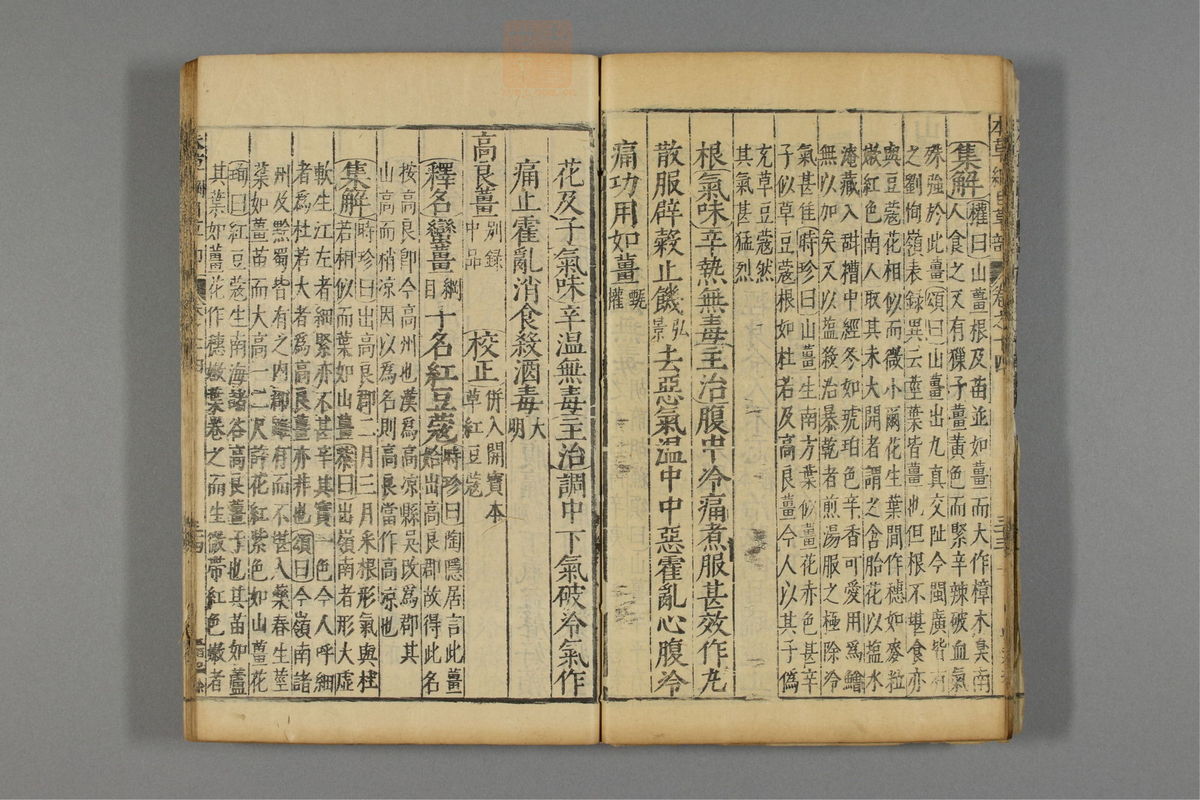 本草綱目草部 卷之十四 三三
集解權曰山薑根及苗並如薑而大作樟木臭南
人食之又有獷子薑黃色而緊辛辣破血氣
殊強於此薑頌曰山薑出九真交阯今閩廣皆有
之劉恂嶺表錄異云莖葉皆薑也但根不堪食亦
與豆蔻花相似而微小爾花生葉間作穗如麥粒
嫩紅色南人取其未大開者謂之含胎花以鹽水
淹藏入甜糟中經冬如琥珀色辛香可愛用為鱠
無以加矣又以鹽殺治暴乾者煎湯服之極除冷
氣甚佳時珍曰山薑生南方葉似薑花赤色甚辛
子似草豆蔻根如杜若及高良薑今人以其子偽
充草豆蔻然
其氣甚猛烈
根氣味辛熱無毒主治腹中冷痛煮服甚效作丸
散服辟穀止饑弘景去惡氣溫中中惡霍亂心腹冷
痛功用如薑甄權
花及子氣味辛温無毒主治調中下氣破冷氣作
痛止霍亂消食殺酒毒大明
高良薑別錄中品 校正併入開寶本草紅豆蔻
釋名蠻薑綱目子名紅豆蔻時珍曰陶隱居言此薑
始出高良郡故得此名
按高良即今高州也漢為高凉縣吳改為郡其
山高而稍凉因以為名則高良當作高凉也
集解時珍曰出高良郡二月三月采根形氣與杜
若相似而葉如山薑恭曰出嶺南者形大虛
軟生江左者細緊亦不甚辛其實一也今人呼細
者為杜若大者為高良薑亦非也頌曰今嶺南諸
州及黔蜀皆有之內郡雖有而不堪入藥春生莖
葉如薑苗而大高一二尺許花紅紫色如山薑花
珣曰紅豆蔻生南海諸谷高良薑子也其苗如蘆
其葉如薑花作穗嫩葉卷之而生微帶紅色嫩者